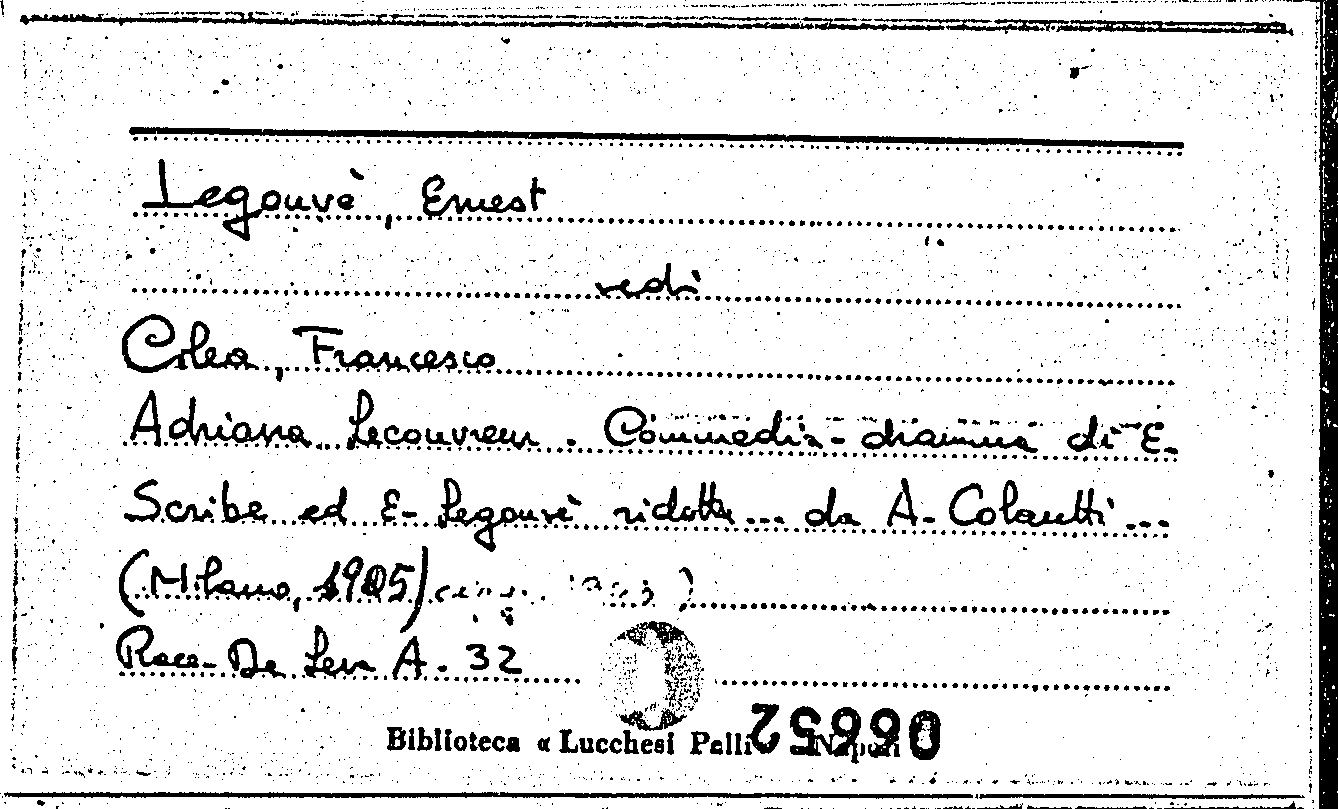 Legouvè, Ernest
vedi
Cilea, Francesco
Adriana Lecouvreur. Commedia-dramma di E.
Scribe ed E. Legouvè ridotta... da A. Colautti...
(Milano, 1905)
Racc. De Lev A. 32
Biblioteca « Lucchesi Palli » Napoli